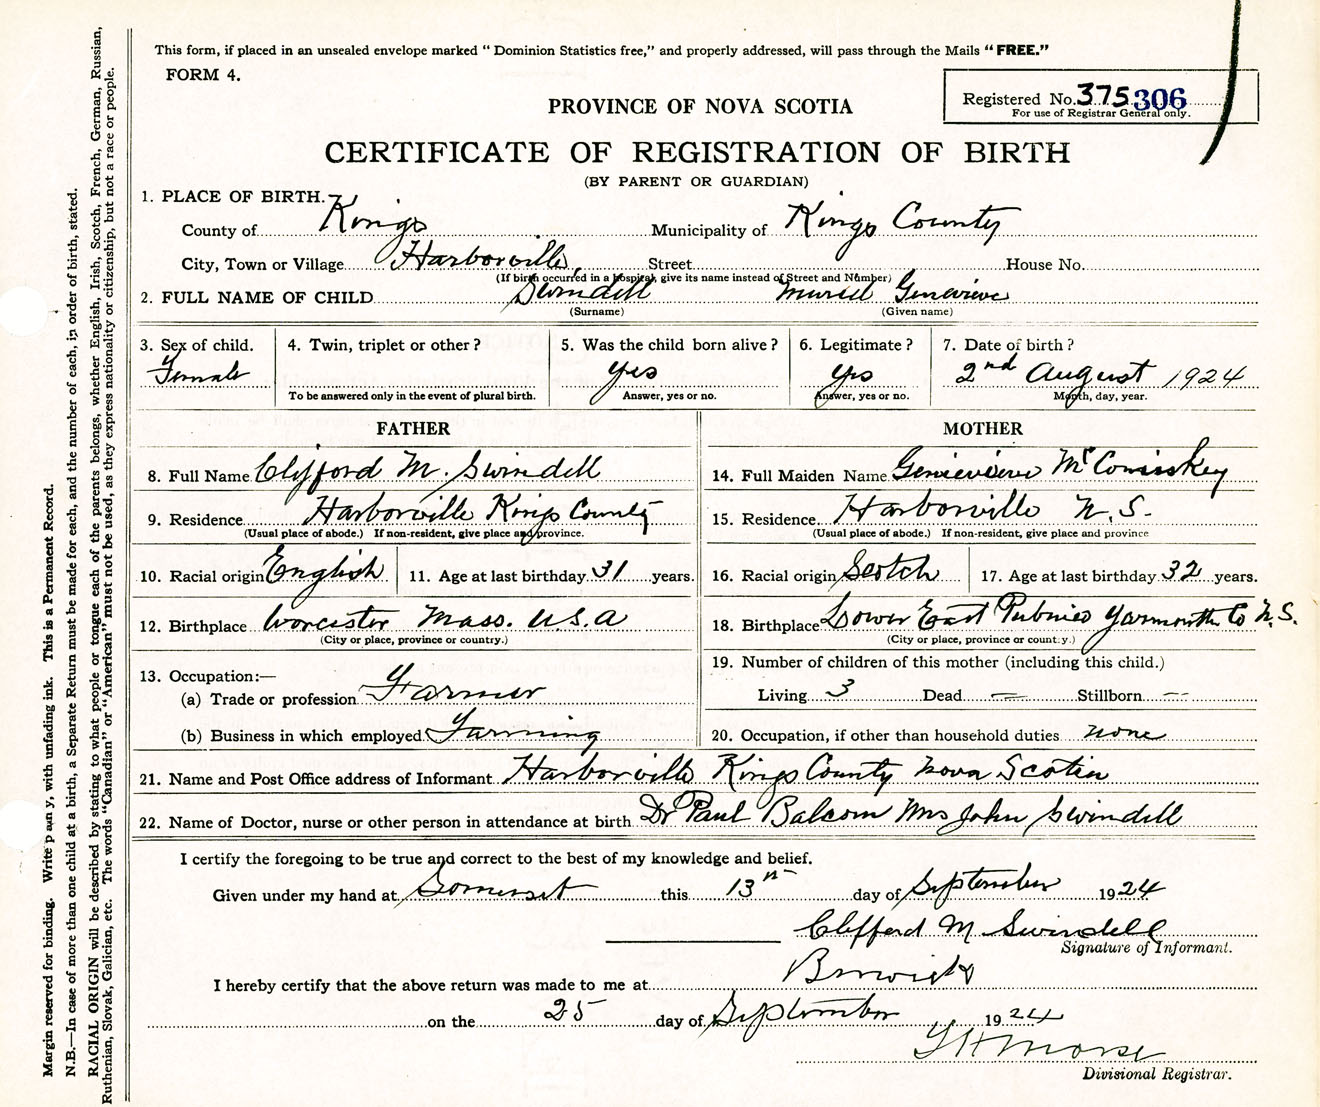 This form, if placed in an unsealed envelope marked " Dominion Statistics free," and properly addressed, will pass through the Mails " FREE."
FORM 4.
Registered No. 375 306
For use of Registrar General only.
PROVINCE OF NOVA SCOTIA
CERTIFICATE OF REGISTRATION OF BIRTH
(BY PARENT OR GUARDIAN)
1. PLACE OF BIRTH.
County of Kings Municipality of Kings County
City, Town or Village Harborville, Street House No.
(If birth occurred in a hospital, give its name instead of Street and Number)
2. FULL NAME OF CHILD Swindell Muriel Genevieve
(Surname) (Given name)
3. Sex of child. 4. Twin, triplet or other ? 5. Was the child born alive ? 6. Legitimate ? 7. Date of birth ?
Female yes yes 2nd August 1924
To be answered only in the event of plural birth. Answer, yes or no. Answer, yes or no. Month, day, year.
FATHER MOTHER
8. Full Name Clifford M. Swindell 14. Full Maiden Name Genievieve McComiskey
9. Residence Harborville Kings County 15. Residence Harborville N.S.
(Usual place of abode.) If non-resident, give place and province. (Usual place of abode.) If non-resident, give place and province
10. Racial origin English 11. Age at last birthday 31 years. 16. Racial origin Scotch 17. Age at last birthday 32 years.
12. Birthplace Worcister Mass. U.S.A 18. Birthplace Lower East Pubnico Yarmouth Co N.S.
(City or place, province or country.) (City or place, province or country.)
13. Occupation:— 19. Number of children of this mother (including this child.)
(a) Trade or profession Farmer Living 3 Dead — Stillborn --
(b) Business in which employed Farming 20. Occupation, if other than household duties none
21. Name and Post Office address of Informant Harborville Kings County Nova Scotia
22. Name of Doctor, nurse or other person in attendance at birth Dr Paul Balcom Mrs John Swindell
I certify the foregoing to be true and correct to the best of my knowledge and belief.
Given under my hand at Somerset this 13th day of September 1924
Clifford M Swindell
Signature of Informant.
I hereby certify that the above return was made to me at Berwick
on the 25 day of September 1924
Morse
Divisional Registrar.
Margin reserved for binding. Write plainly, with unfading ink. This is a Permanent Record.
N.B.—In case of more than one child at a birth, a Separate Return must be made for each, and the number of each, in order of birth, stated.
RACIAL ORIGIN will be described by stating to what people or tongue each of the parents belongs, whether English, Irish, Scotch, French, German, Russian,
Ruthenian, Slovak, Galician, etc. The words "Canadian" or "American" must not be used, as they express nationality or citizenship, but not a race or people.